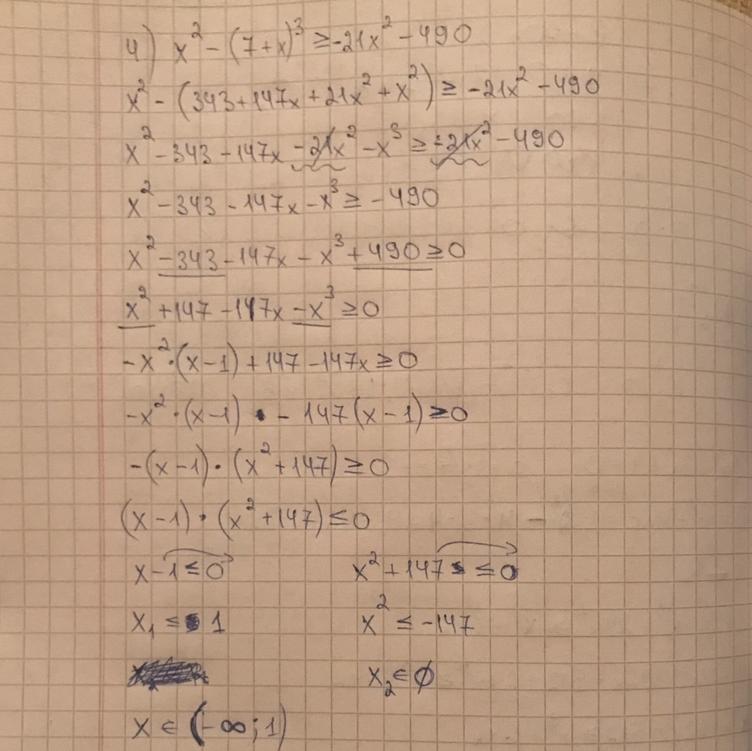 4) x² - (7+x)³ ≥ -21x² - 490
x² - (343+147x+21x²+x²) ≥ -21x² - 490
x² - 343 - 147x - 21x² - x³ ≥ -21x² - 490
x² - 343 - 147x - x³ ≥ -490
x² - 343 - 147x - x³ + 490 ≥ 0
x² + 147 - 147x - x³ ≥ 0
-x²·(x-1) + 147 - 147x ≥ 0
-x²·(x-1) - 147(x-1) ≥ 0
-(x-1)·(x²+147) ≥ 0
(x-1)·(x²+147) ≤ 0
x-1 ≤ 0 x²+147 ≤ 0
x₁ ≤ 1 x² ≤ -147
x₂ ∈ ∅
x ∈ (-∞; 1)